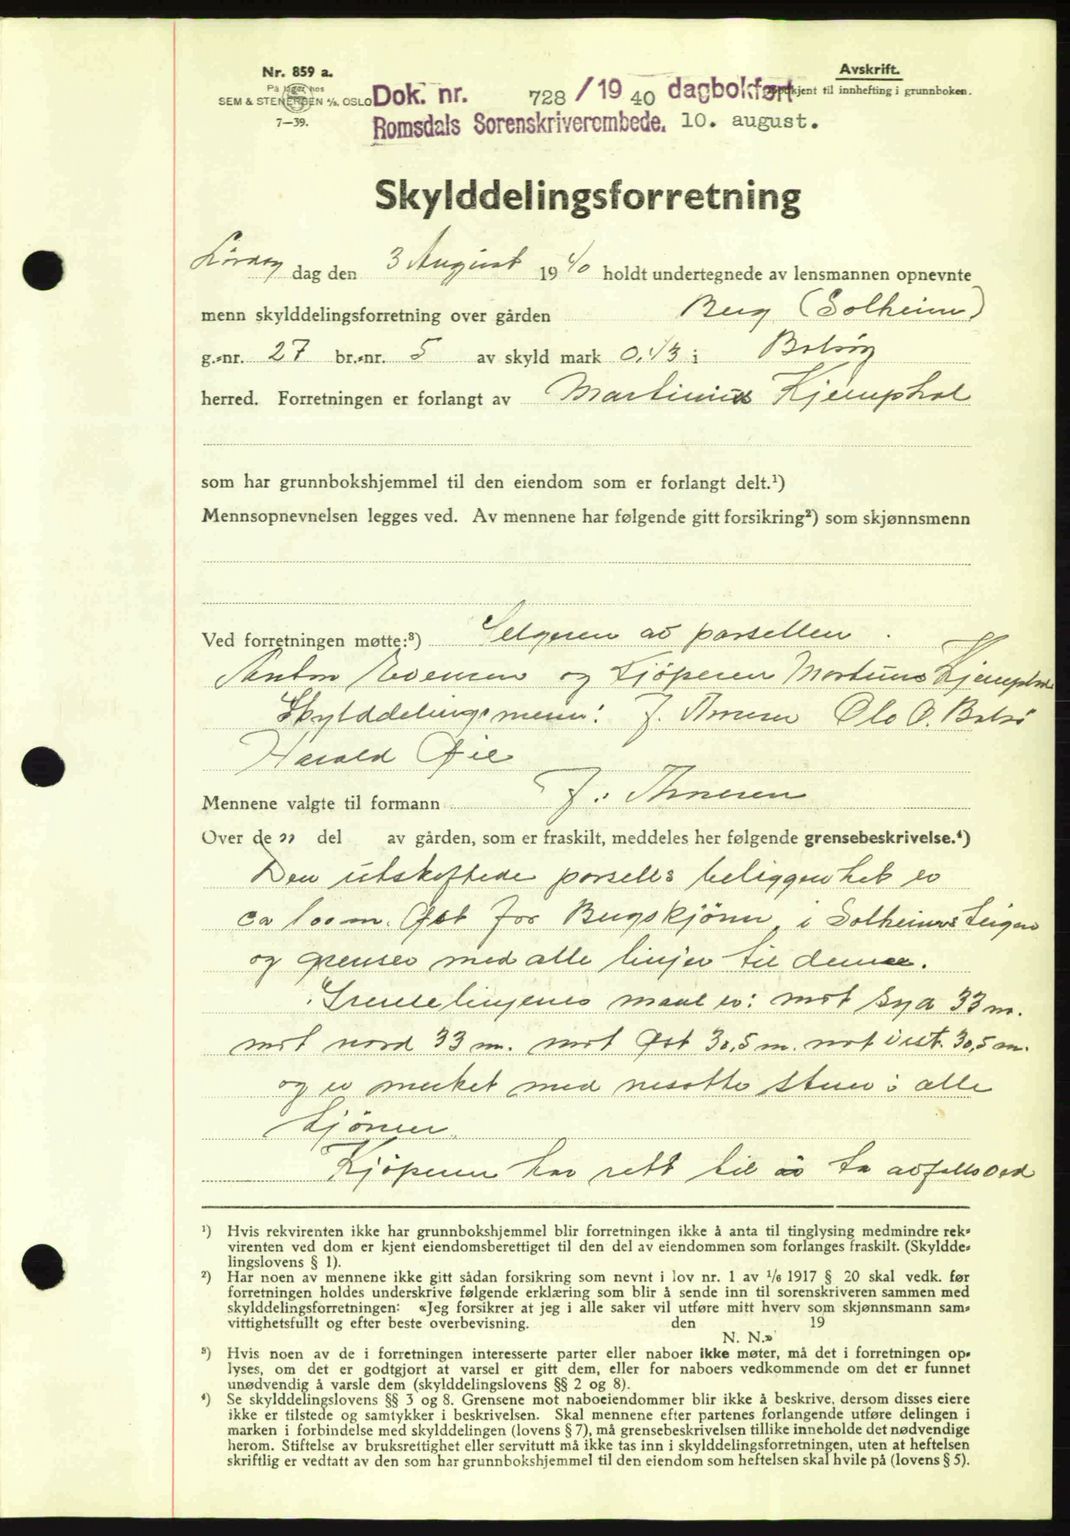 Nr. 859 a.
På lager hos
SEM & STENERSEN A/S, OSLO
7—39.
Avskrift.
Godkjent til innhefting i grunnboken.
Dok. nr. 728 /19 40 dagbokført
Romsdals Sorenskriverembede. 10. august.
Skylddelingsforretning
Lørdag dag den 3 August 19 40 holdt undertegnede av lensmannen opnevnte
menn skylddelingsforretning over gården Berg (Solheim)
g.-nr. 27 br.-nr. 5 av skyld mark 0,43 i Bolsøy
herred. Forretningen er forlangt av Martinius Kjemphol
som har grunnbokshjemmel til den eiendom som er forlangt delt.¹)
Mennsopnevnelsen legges ved. Av mennene har følgende gitt forsikring²) som skjønnsmenn
Ved forretningen møtte:³) Selgeren av parsellen.
Anton Evensen og Kjöperen Martinus Kjemphol
Skylddelingsmenn: J. Arnesen Ole O. Bolsö
Harald Øie
Mennene valgte til formann J. Arnesen
Over de n del av gården, som er fraskilt, meddeles her følgende grensebeskrivelse.⁴)
Den utskiftede parsells beliggenhet er
ca 100 m. Øst for Bergskjönn i Solheims teigen
og grenser med alle linjer til denne.
Grenselinjenes maal er: mot Syd 33 m.
mot nord 33 m. mot Øst 30,5 m. mot Vest. 30,5 m.
og er merket med nesatte stener i alle
hjörner.
Kjöperen har rett til å ta avfallsved
¹) Hvis rekvirenten ikke har grunnbokshjemmel blir forretningen ikke å anta til tinglysing medmindre rek-
virenten ved dom er kjent eiendomsberettiget til den del av eiendommen som forlanges fraskilt. (Skyldde-
lingslovens § 1).
²) Har noen av mennene ikke gitt sådan forsikring som nevnt i lov nr. 1 av 1/6 1917 § 20 skal vedk. før
forretningen holdes underskrive følgende erklæring som blir å sende inn til sorenskriveren sammen med
skylddelingsforretningen: «Jeg forsikrer at jeg i alle saker vil utføre mitt hverv som skjønnsmann sam-
vittighetsfullt og efter beste overbevisning. den 19
N. N.»
³) Hvis noen av de i forretningen interesserte parter eller naboer ikke møter, må det i forretningen op-
lyses, om det er godtgjort at varsel er gitt dem, eller for naboers vedkommende om det er funnet
unødvendig å varsle dem (skylddelingslovens §§ 2 og 8).
⁴) Se skylddelingslovens §§ 3 og 8. Grensene mot naboeiendommer blir ikke å beskrive, dersom disses eiere
ikke er tilstede og samtykker i beskrivelsen. Skal mennene efter partenes forlangende utføre delingen i
marken i forbindelse med skylddelingen (lovens § 7), må grensebeskrivelsen tillike inneholde det nødvendige
herom. Stiftelse av bruksrettighet eller servitutt må ikke tas inn i skylddelingsforretningen, uten at heftelsen
skriftlig er vedtatt av den som har grunnbokshjemmel til den eiendom som heftelsen skal hvile på (lovens § 5).